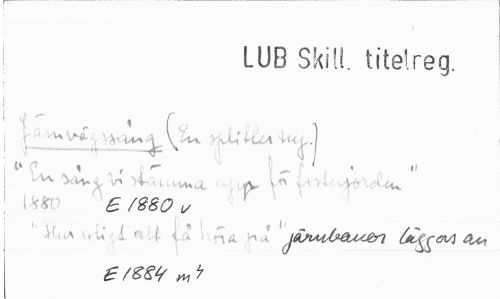 LUB Skill. titelreg.
Järnvägssång (En splitter ny.)
"En sång vi stämma upp för fosterjorden"
1880 E 1880 v
"Hur roligt att få höra på" järnbanor läggas an
E 1884 m⁴